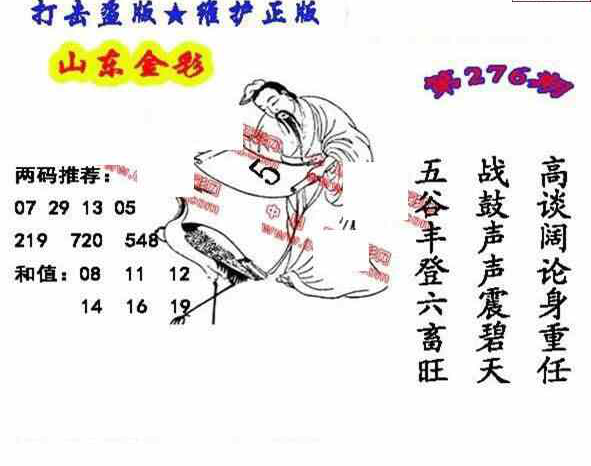 打击盗版★维护正版
山东金彩
第276期
两码推荐:
07 29 13 05
219 720 548
和值: 08 11 12
14 16 19
5
中
高谈阔论身重任
战鼓声声震碧天
五谷丰登六畜旺